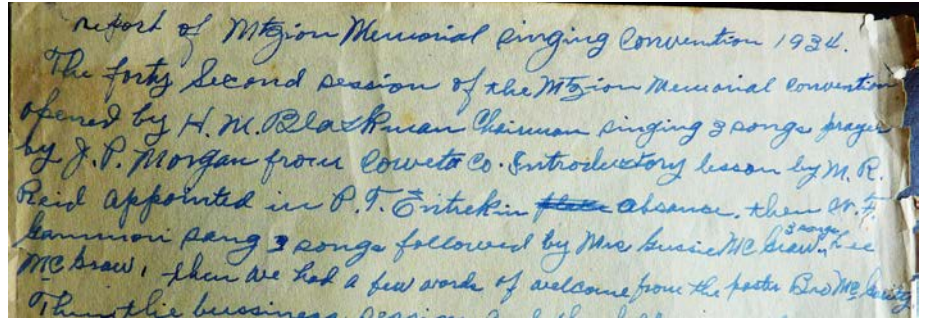 report of Mtzion Memorial singing Convention 1934.
The forty Second session of the Mtzion Memorial Convention
opened by H. M. Blackman Chairman singing 3 songs prayer
by J. P. Morgan from Coweta Co. Introductory lesson by M. R.
Reid appointed in P. T. Entrekin absence. then W. F.
Gammon sang 3 songs followed by Mrs Gussie McGraw, 3 songs Lee
McGraw, then we had a few words of welcome from the pastor Bro
Then the bussiness session